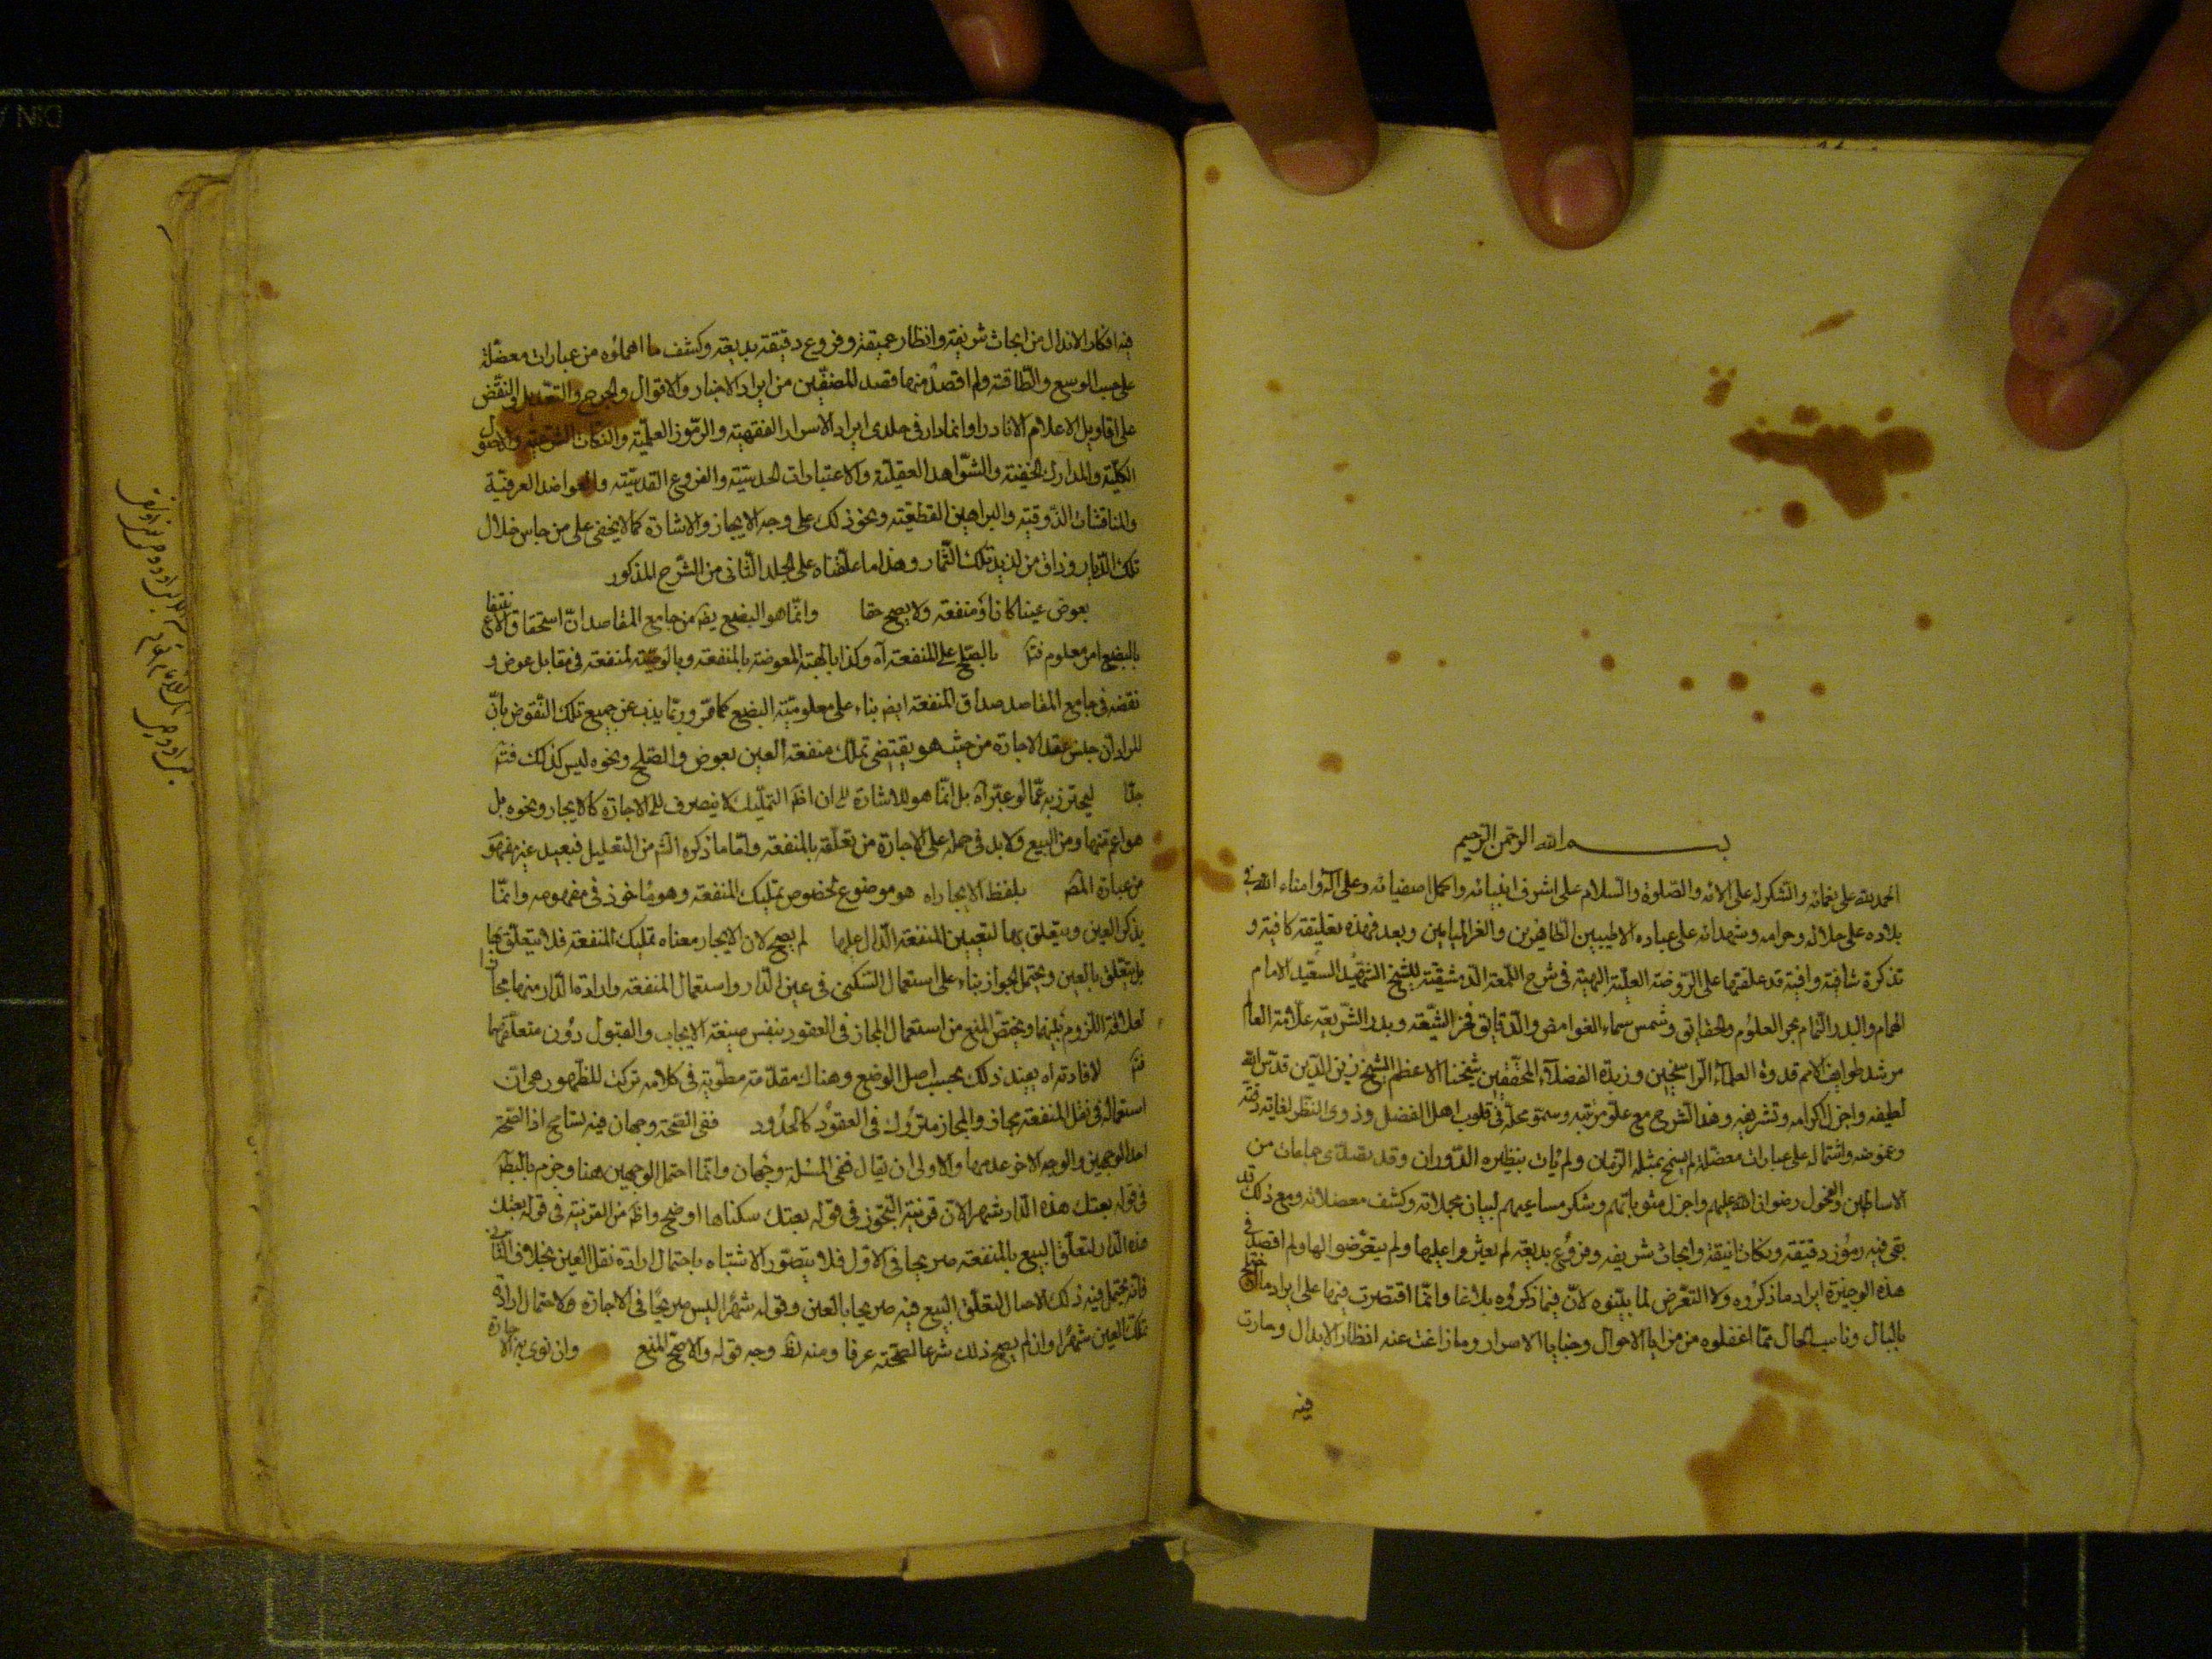 بسم الله الرحمن الرحيم
الحمد لله على نعمائه والشكر له على آلائه والصّلوة والسّلام على اشرف انبيائه واكمل اصفيائه وعلى آله وامناء الله في
بلاده على حلاله وحرامه وشهدائه على عباده الاطيبين الطّاهرين والغرّ الميامين وبعد فهذه تعليقة كافية و
تذكرة شافية وافية قد علقتها على الرّوضة العليّة البهيّة في شرح اللّمعة الدّمشقيّة للشيخ الشّهيد السّعيد الامام
الهمام والبدر التّمام بحر العلوم والحقايق وشمس سماء الغوامض والدّقايق فخر الشّيعة وبدر الشّريعة علّامة العالم
مرشد طوايف الامم قدوة العلماء الرّاسخين وزبدة الفضلاء المحقّقين شيخنا الاعظم الشيخ زين الدّين قدّس الله
لطيفه واجزل اكرامه وتشريفه وهذا الشرح مع علوّ مرتبه وسموّ محلّه في قلوب اهل الفضل وذوى النظر لغاية دقّته
وغموضه واشتماله على عبارات معضلة لم يسنح بمثله الزّمان ولم يأت بنظيره الدّوران وقد تصدّى جماعات من
الاساطين والفحول رضوان الله عليهم واجزل مثوباتهم وشكر مساعيهم لبيان مجملاته وكشف معضلاته ومع ذلك قد
بقى فيه رموز دقيقة ونكات انيقة وابحاث شريفه وفروع بديعة لم يعثروا عليها ولم يتعرّضوا لها ولم اقصد في
هذه الوجيزة ايراد ما ذكروه ولا التعرّض لما بيّنوه لانّ فيما ذكروه بلاغا وانّما اقتصرت فيها على ايراد ما اختلج
بالبال وناسب الحال ممّا اغفلوه من مزايا الاحوال وخبايا الاسرار وما زاغت عنه انظار الابدال وحارت
فيه
فيه افكار الانذال من ابحاث شريفة وانظار عميقة وفروع دقيقة بديعة وكشف ما اهملوه من عبارات معضلة
على حسب الوسع والطّاقة ولم اقصد منها قصد المصنّفين من ايراد الاخبار والاقوال والجرح والتعديل والنقض
على اقاويل الاعلام الا نادرا وانما دار في خلدى ايراد الاسرار الفقهية والرّموز العلميّة والنكات الشرعيّة والاصول
الكليّة والمدارك الخفية والشّواهد العقليّة والاعتبارات الحدسيّة والفروع القدسيّة والعواضد العرفيّة
والمناقشات الذّوقية والبراهين القطعيّة ونحو ذلك على وجه الايجاز والاشارة كما لا يخفى على من جاس خلال
تلك الدّيار وذاق من لذيذ تلك الثّمار وهذا ما علّقناه على الجلد الثّانى من الشّرح المذكور
بعوض عينا كان او منفعة ولا يصح حقا وانّما هو البضع يفهم من جامع المقاصد انّ استحقاق الانتفاع
بالبضع امر معلوم فتم بالصّلح على المنفعة آه وكذا بالهبة المعوضة بالمنفعة وبالوصيّة لمنفعة في مقابل عوض و
نقضه في جامع المقاصد صداق المنفعة ايض بناء على معلوميّة البضع كما مّر وربّما يذبّ عن جميع تلك النّقوض بانّ
المراد ان جنس عقد الاجارة من حيث هو يقتضى تملّك منفعة العين بعوض والصّلح ونحوه ليس كذلك فتم
جدّا ليحترز به عمّا لو عبّر آه بل انّما هو للاشارة الى ان اظهر التمليك لا ينصرف الى الاجارة كالايجار ونحوه بل
هو اعم منها ومن البيع ولا بد في حمله على الاجارة من تعلّقه بالمنفعة وامّا ما ذكره الش من التعليل فبعيد غير مفهوم
من عبارة المص بلفظ الايجار اه هو موضوع لخصوص تمليك المنفعة وهو مأخوذ في مفهومه وانمّا
يذكر العين ويتعلق بها لتعيين المنفعة الدّال عليها لم يصح لان الايجار معناه تمليك المنفعة فلا يتعلّق بها
بل يتعلق بالعين ويحتمل الجواز بناء على استعمال السّكنى في عين الدّار واستعمال المنفعة وارادة الدّار منها مجازا
لعلاقة اللّزوم بينهما ويختصّ المنع من استعمال المجاز في العقود بنفس صيغة الايجاب والقبول دون متعلّقهما
فتم لافادته اه يفيد ذلك بحسب اصل الوضع وهناك مقدّمة مطويّة في كلامه تركت للظّهور هى انّ
استعماله في نقل المنفعة مجاز والمجاز متروك في العقود كالحدود ففى الصّحة وجهان فيه تسامح اذ الصّحة
احد الوجهين والوجه الاخر عدمها والاولى ان يقال ففى المسئلة وجهان وانّما احتمل الوجهين ههنا وجزم بالبطلا
في قوله بعتك هذه الدّار شهرا لانّ قرينة التّجوز في قوله بعتك سكناها اوضح واظهر من القرينة في قوله بعتك
هذه الدّار لتعلّق البيع بالمنفعة صريحا في الاوّل فلا يتصوّر الاشتباه باحتمال ارادة نقل العين بخلاف الثّانى
فانّه يحتمل فيه ذلك الاحتمال لتعلّق البيع فيه صريحا بالعين وقوله شهرا ليس صريحا في الاجارة ولاحتمال ارادة
تملّك العين شهرا وان لم يصح ذلك شرعا لصّحته عرفا ومنه يظهر وجه قوله والاصّح المنع وان نوى به الاجارة